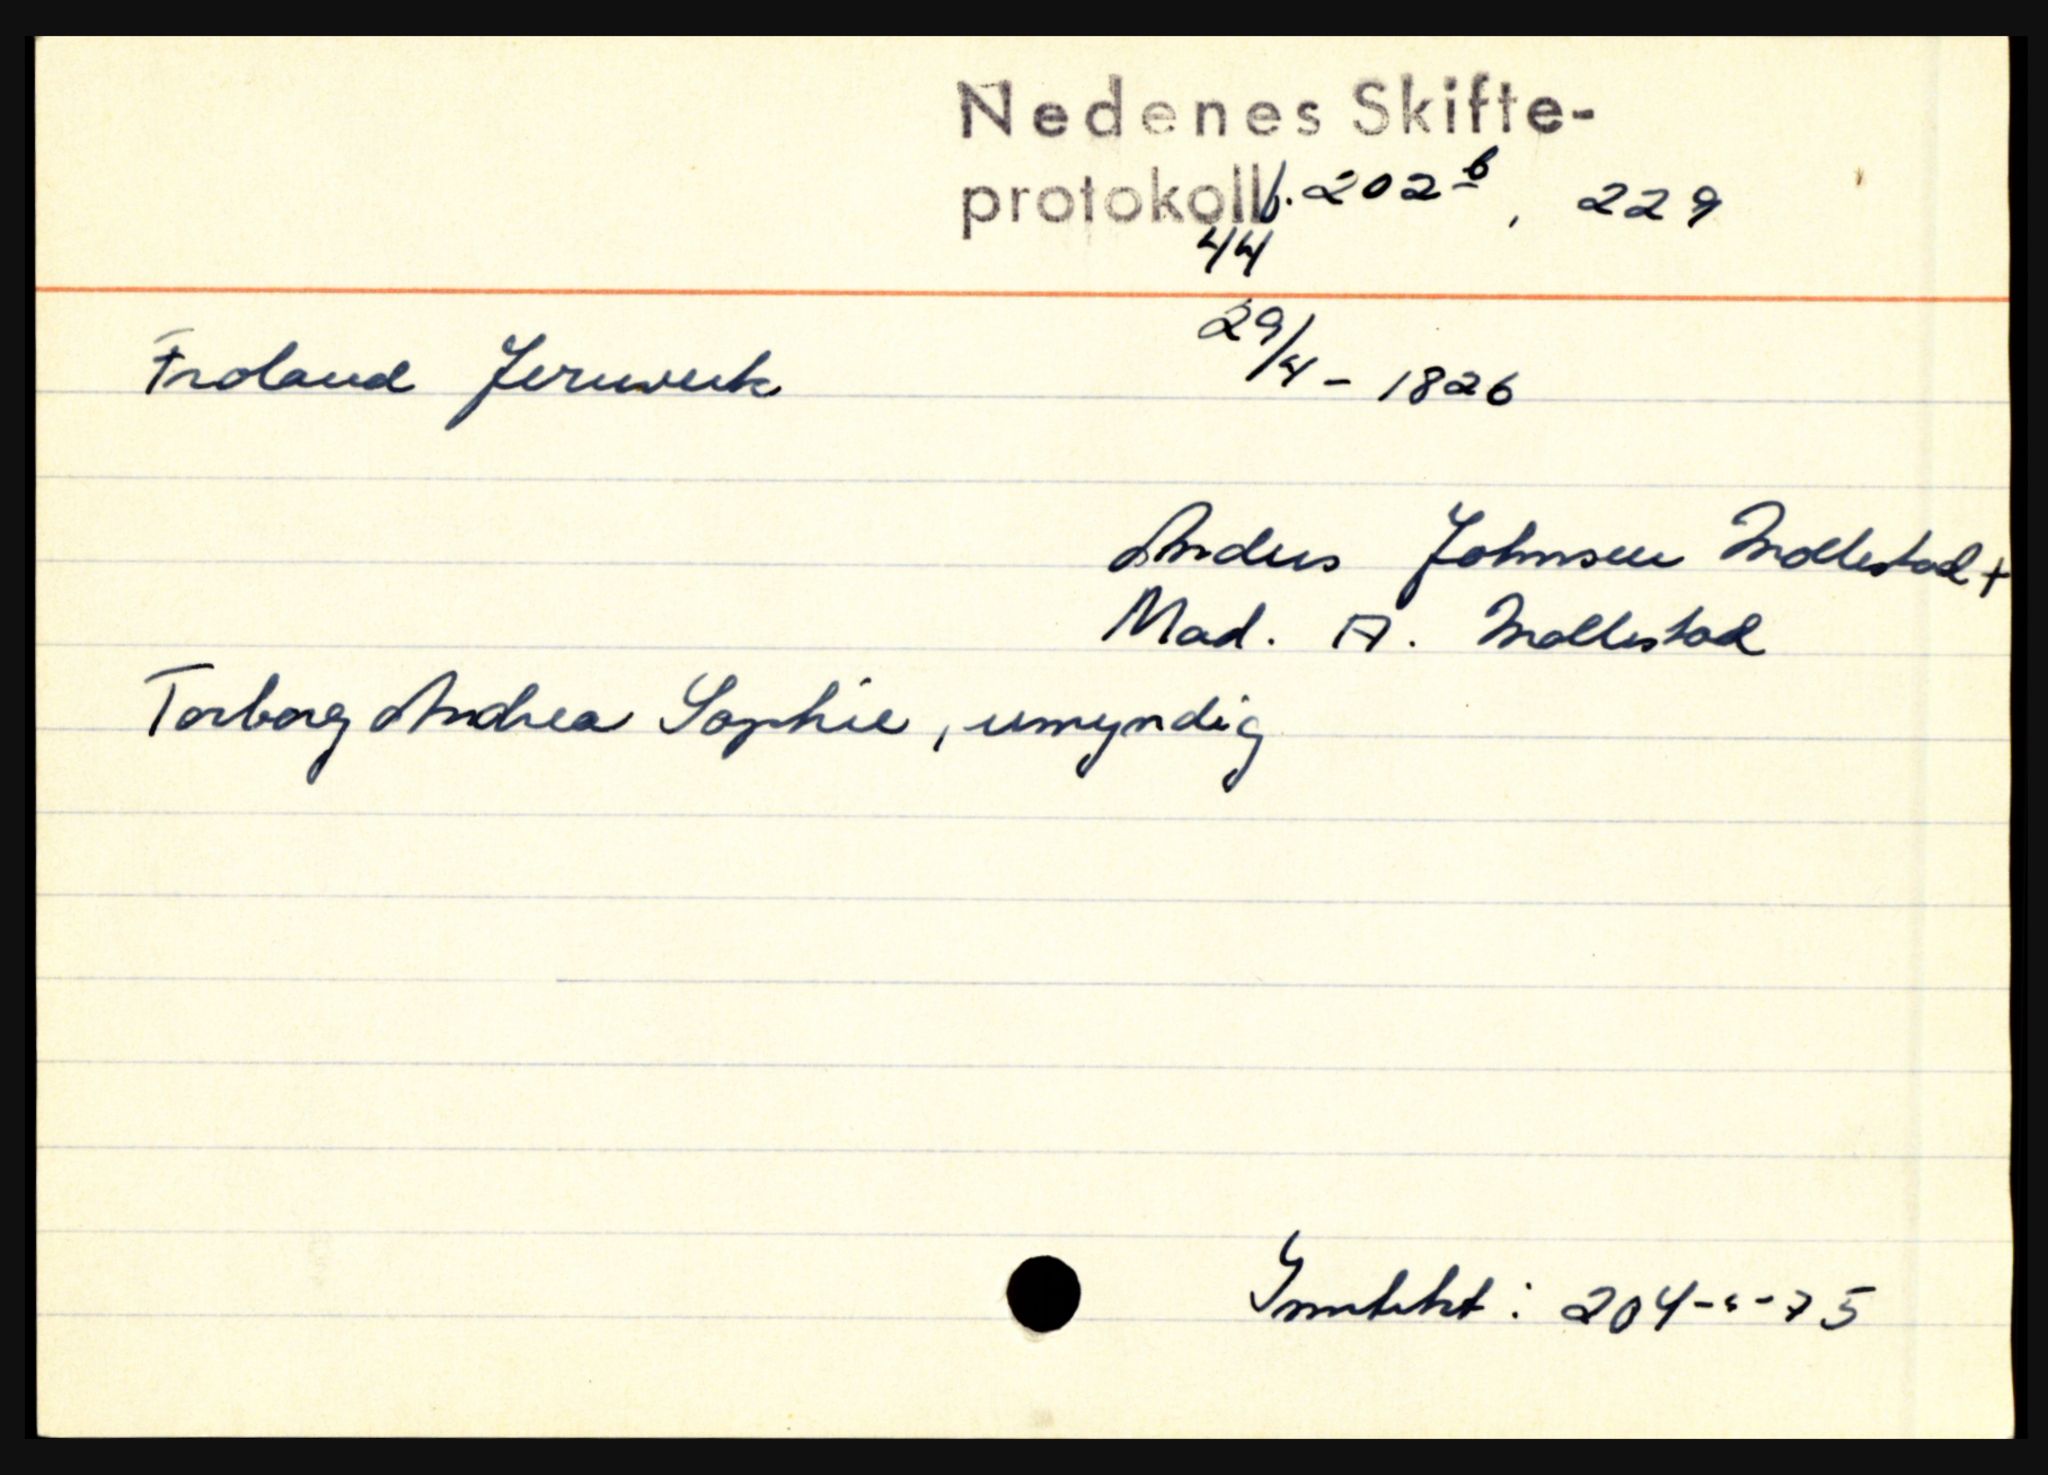 Nedenes Skifte-
protokoll f. 202 b, 229
44
29/4 - 1826
Froland Jernverk
Anders Johnsen Mollestad +
Mad. A. Mollestad
Torborg Andrea Sophie, umyndig
: 204-"-75